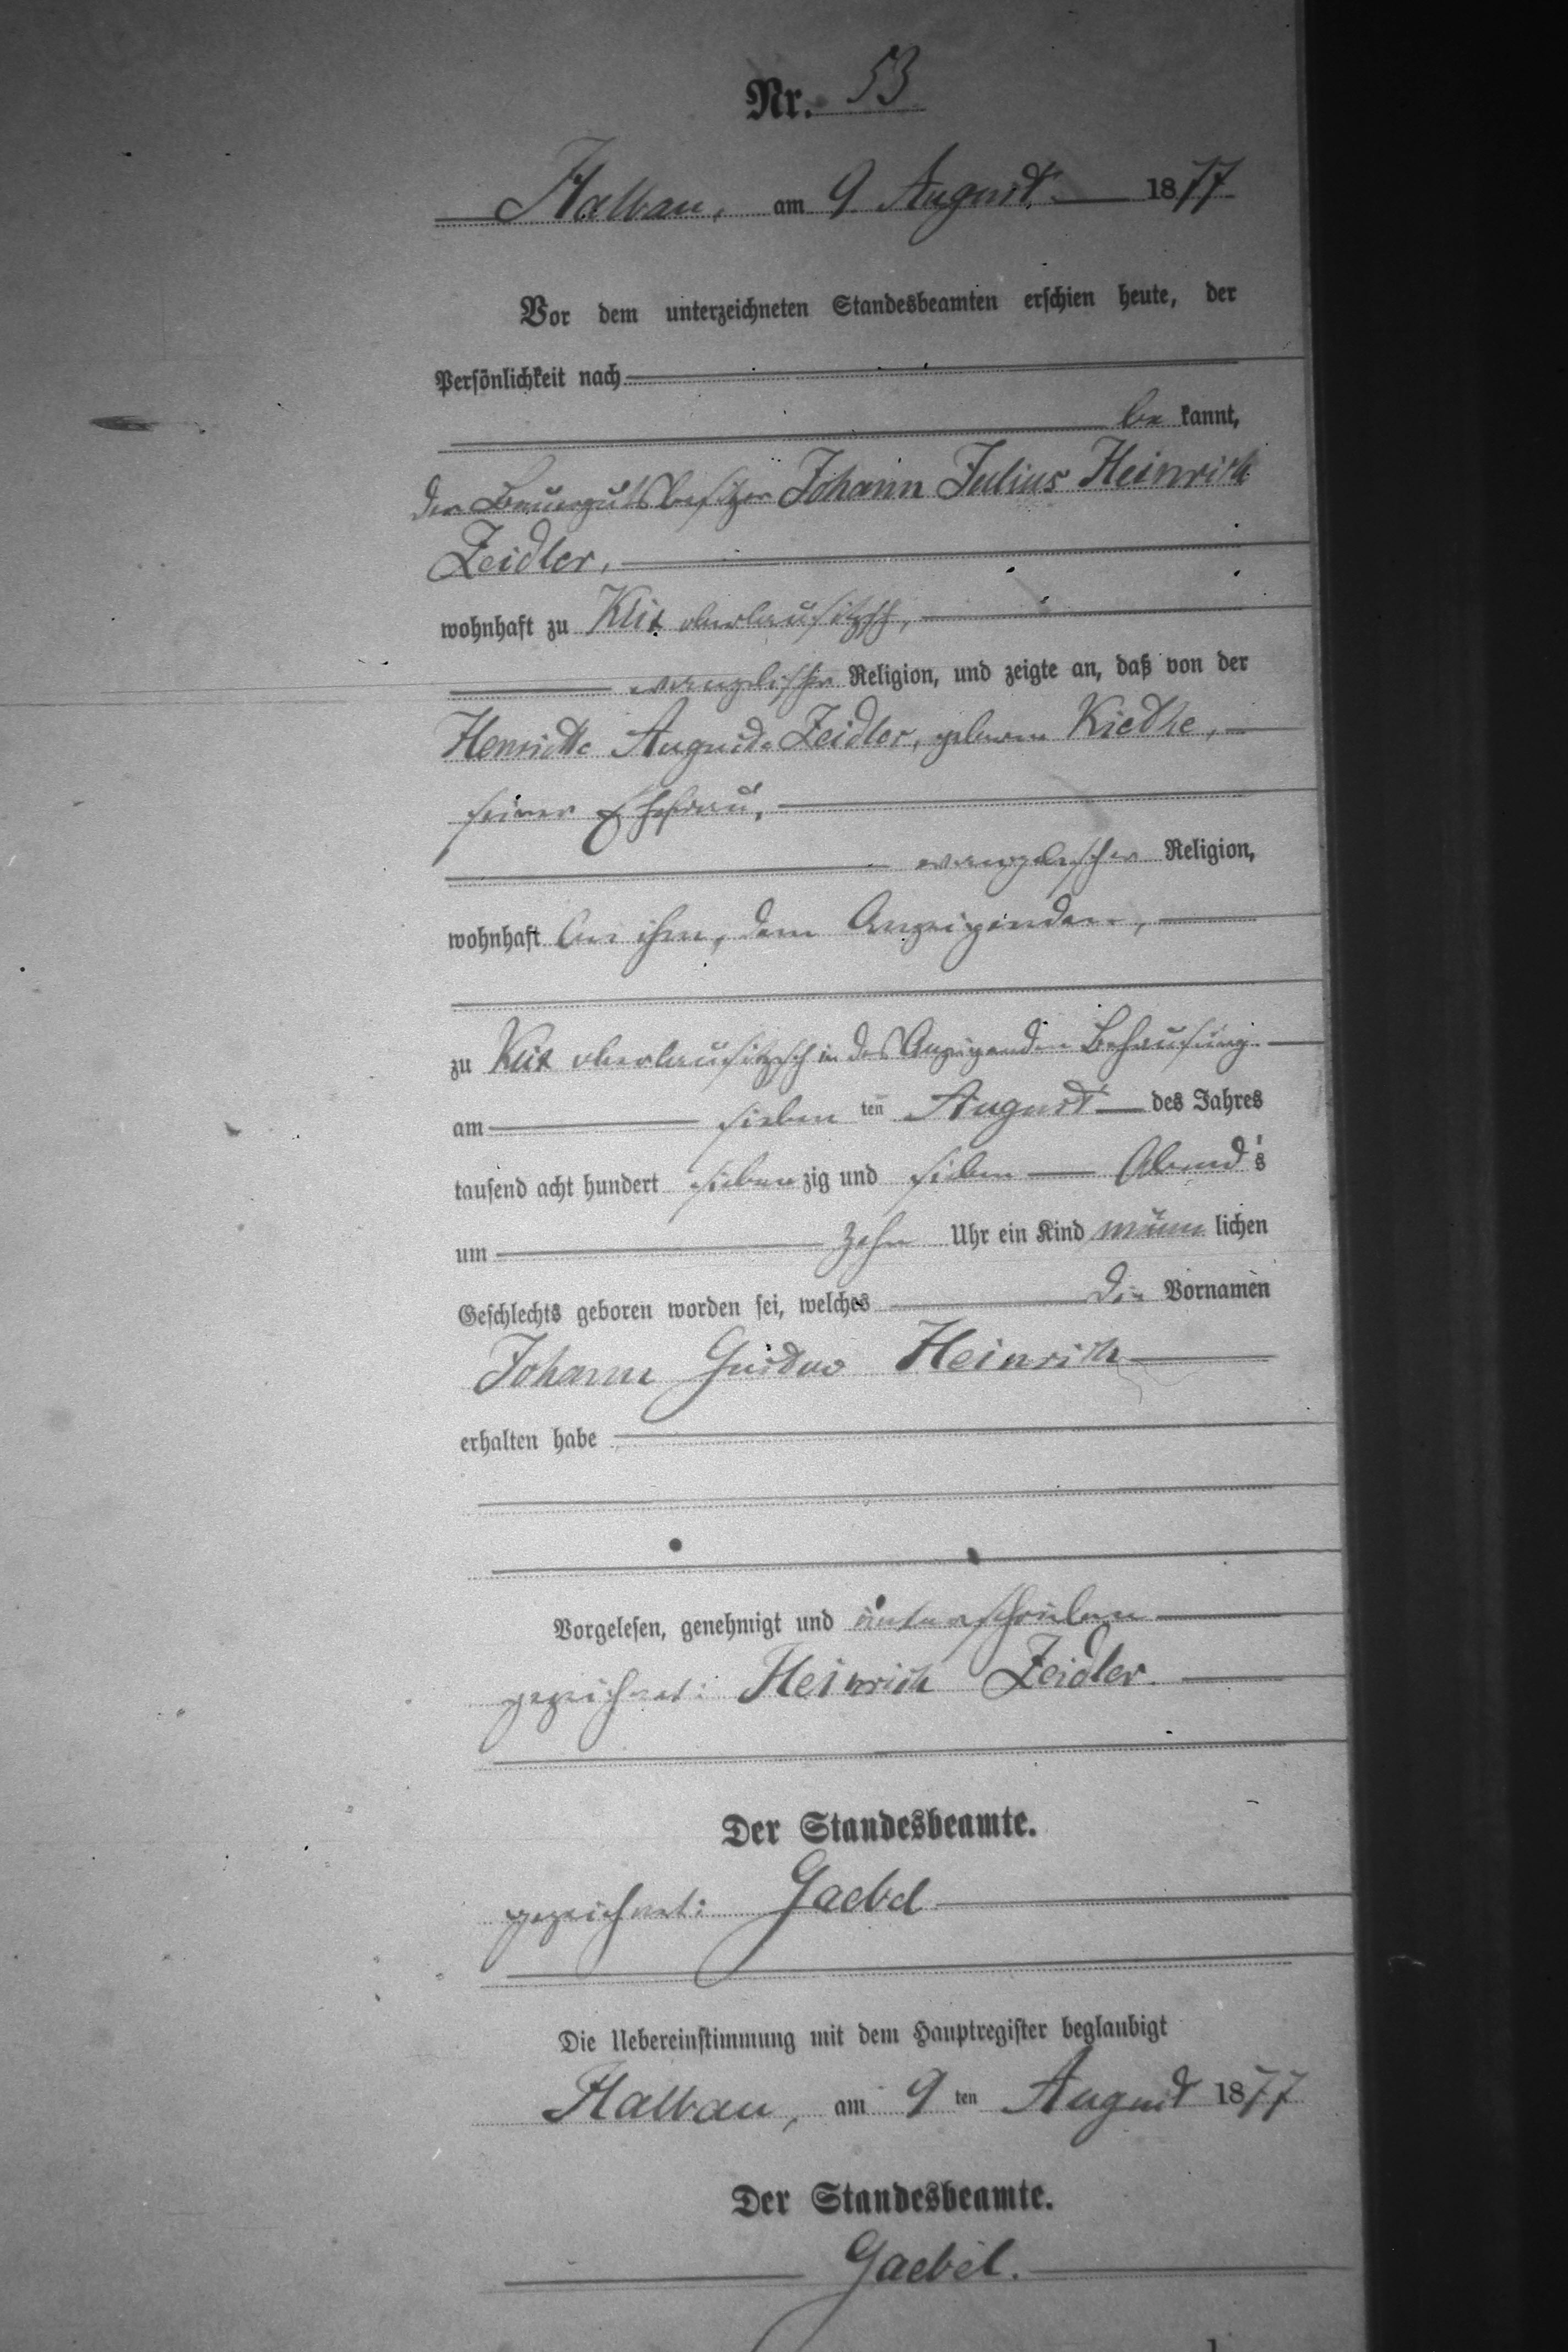 Nr. 53
Halbau, am 9. August 1877
Vor dem unterzeichneten Standesbeamten erschien heute, der
Persönlichkeit nach
be kannt,
der Bauergutsbesitzer Johann Julius Heinrich
Zeidler,
wohnhaft zu Klix oberlausitzsch,
evangelischer Religion, und zeigte an, daß von der
Henriette Auguste Zeidler, geborne
seiner Ehefrau,
evangelischer Religion,
wohnhaft bei ihm, dem Anzeigenden,
zu Klix oberlausitzsch in des Anzeigenden Behausung
am sieben ten August des Jahres
tausend acht hundert sieben zig und sieben Abend's
um zehn Uhr ein Kind männ lichen
Geschlechts geboren worden sei, welches die Vornamen
Johann Gustav Heinrich
erhalten habe
Vorgelesen, genehmigt und unterschrieben
gezeichnet: Heinrich Zeidler.
Der Standesbeamte.
gezeichnet: Gaebel
Die Uebereinstimmung mit dem Hauptregister beglaubigt
Halbau, am 9 ten August 1877
Der Standesbeamte.
Gaebel.